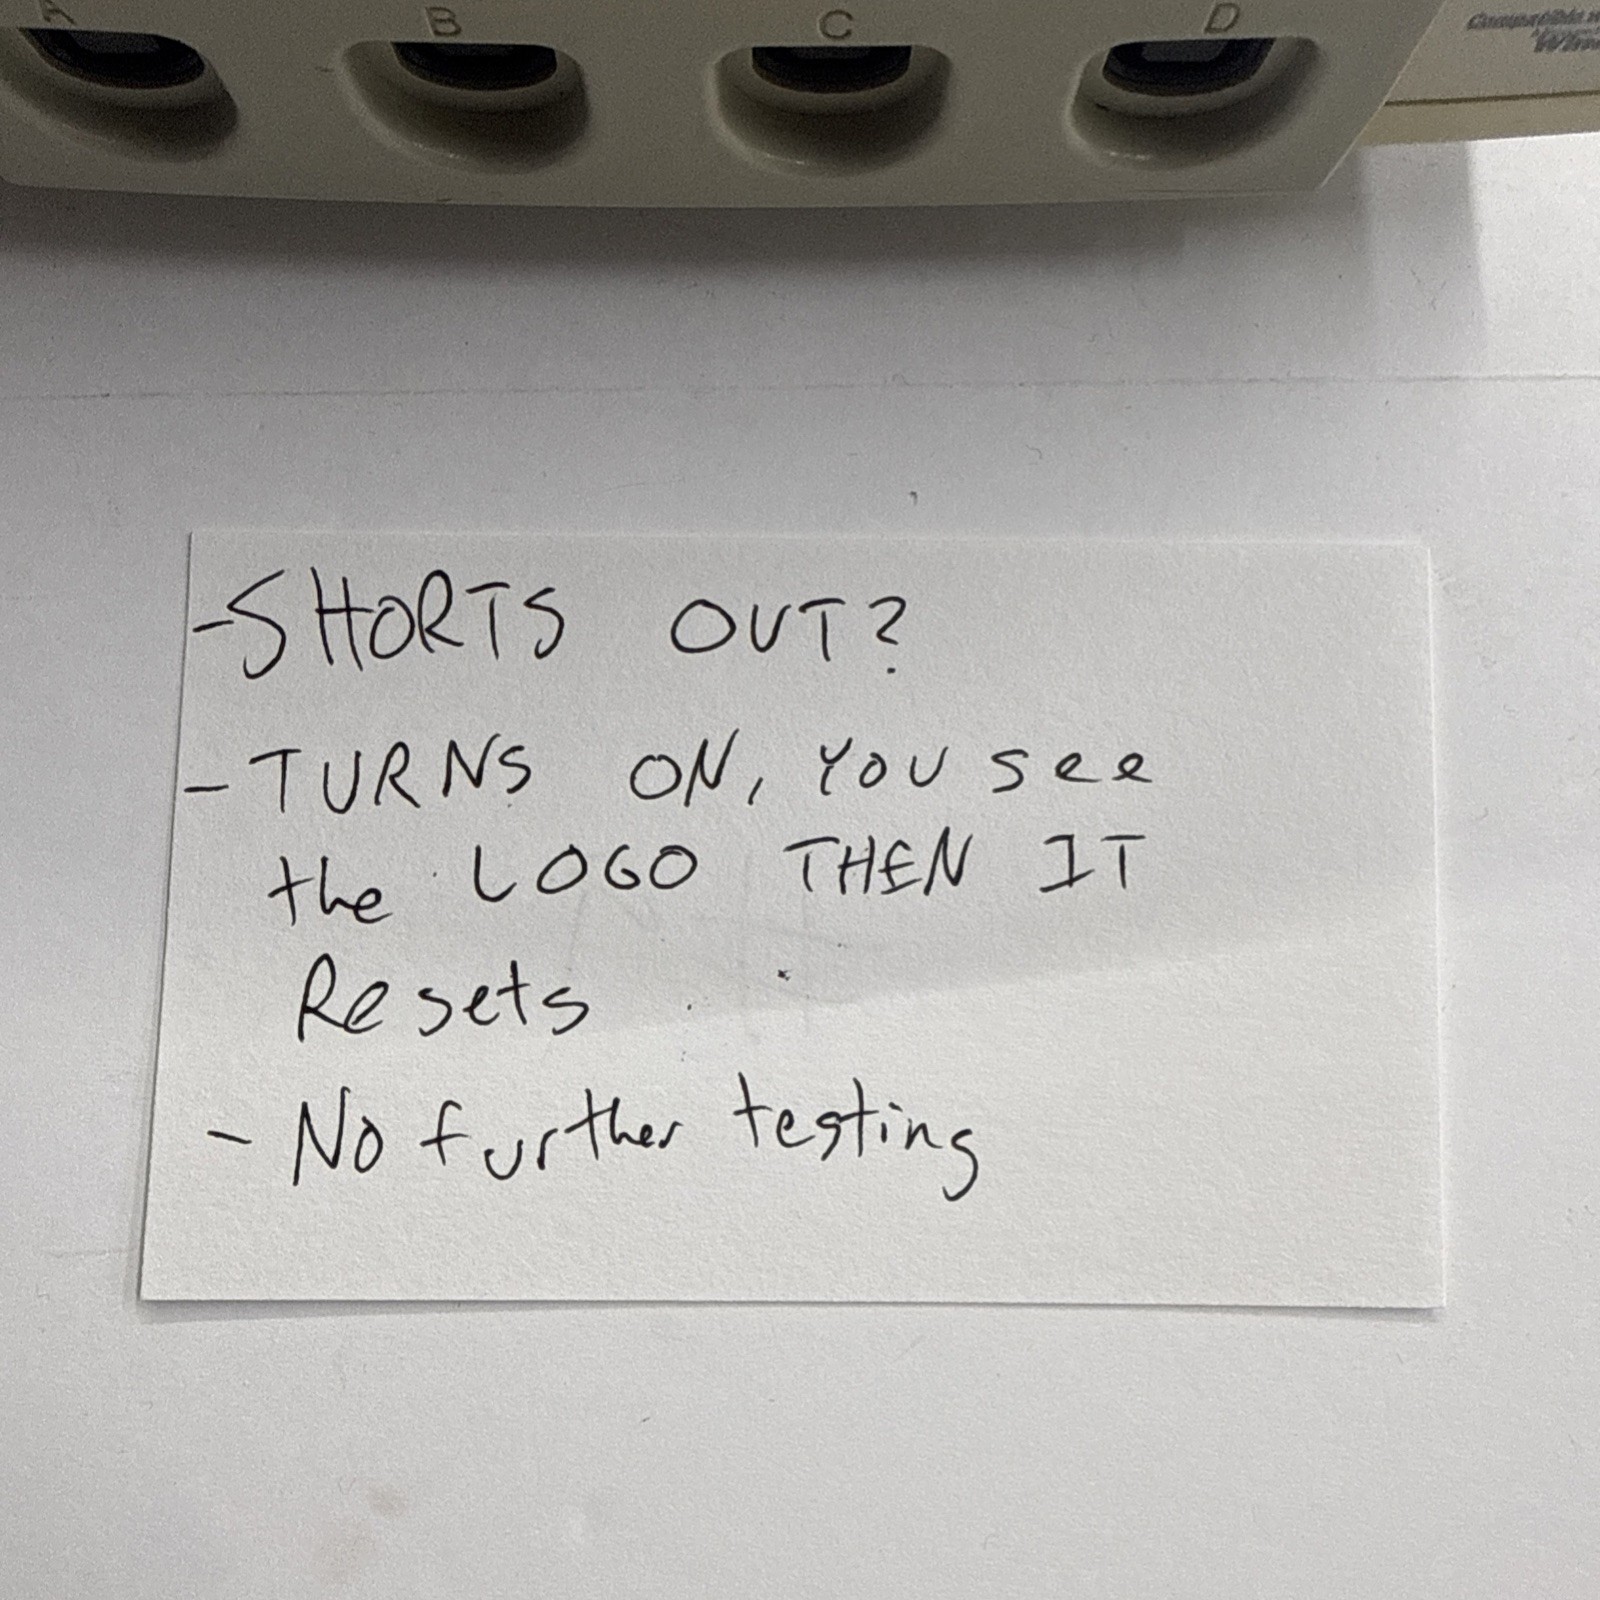 A B C D
Compatible
-SHORTS OUT?
- TURNS ON, YOU see
the LOGO THEN IT
Resets
- No further testing